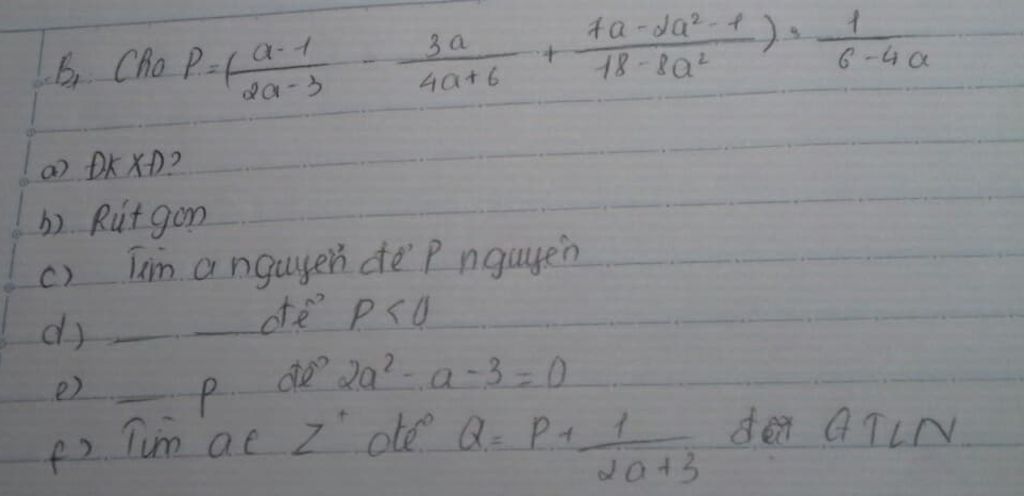 B, Cho P = (\frac{a-1}{2a-3} - \frac{3a}{4a+6} + \frac{7a-2a²-1}{18-8a²}) : \frac{1}{6-4a}
a) ĐKXĐ?
b) Rút gọn
c) Tìm a nguyên để P nguyên
d) ___ ___ để P < 0
e) ___ P để 2a² - a - 3 = 0
f) Tìm a ∈ Z⁺ để Q = P + \frac{1}{2a+3} đạt GTLN